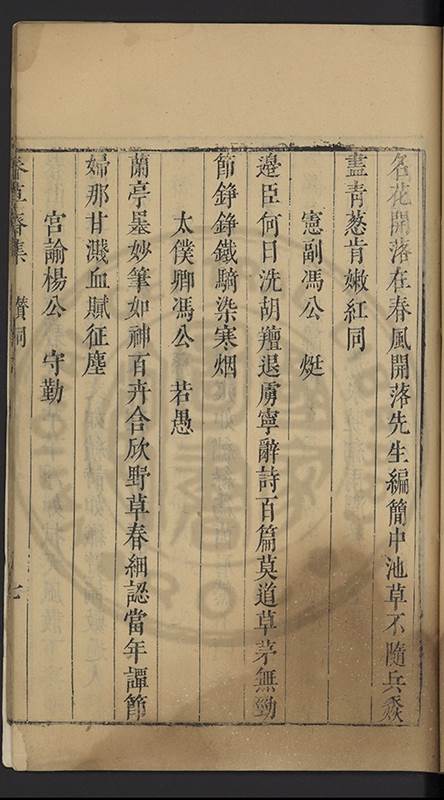 名花開落在春風開落先生編簡中池草不隨兵燹
盡青葱肯嫩紅同
憲副馮公 烶
邊臣何日洗胡羶退虜寧辭詩百篇莫道草茅無勁
節錚錚鐵騎染寒烟
太僕卿馮公 若愚
蘭亭墨妙筆如神百卉含欣野草春細認當年譚節
婦那甘濺血賦征塵
宮諭楊公 守勤
春草齋集 讚詞 七